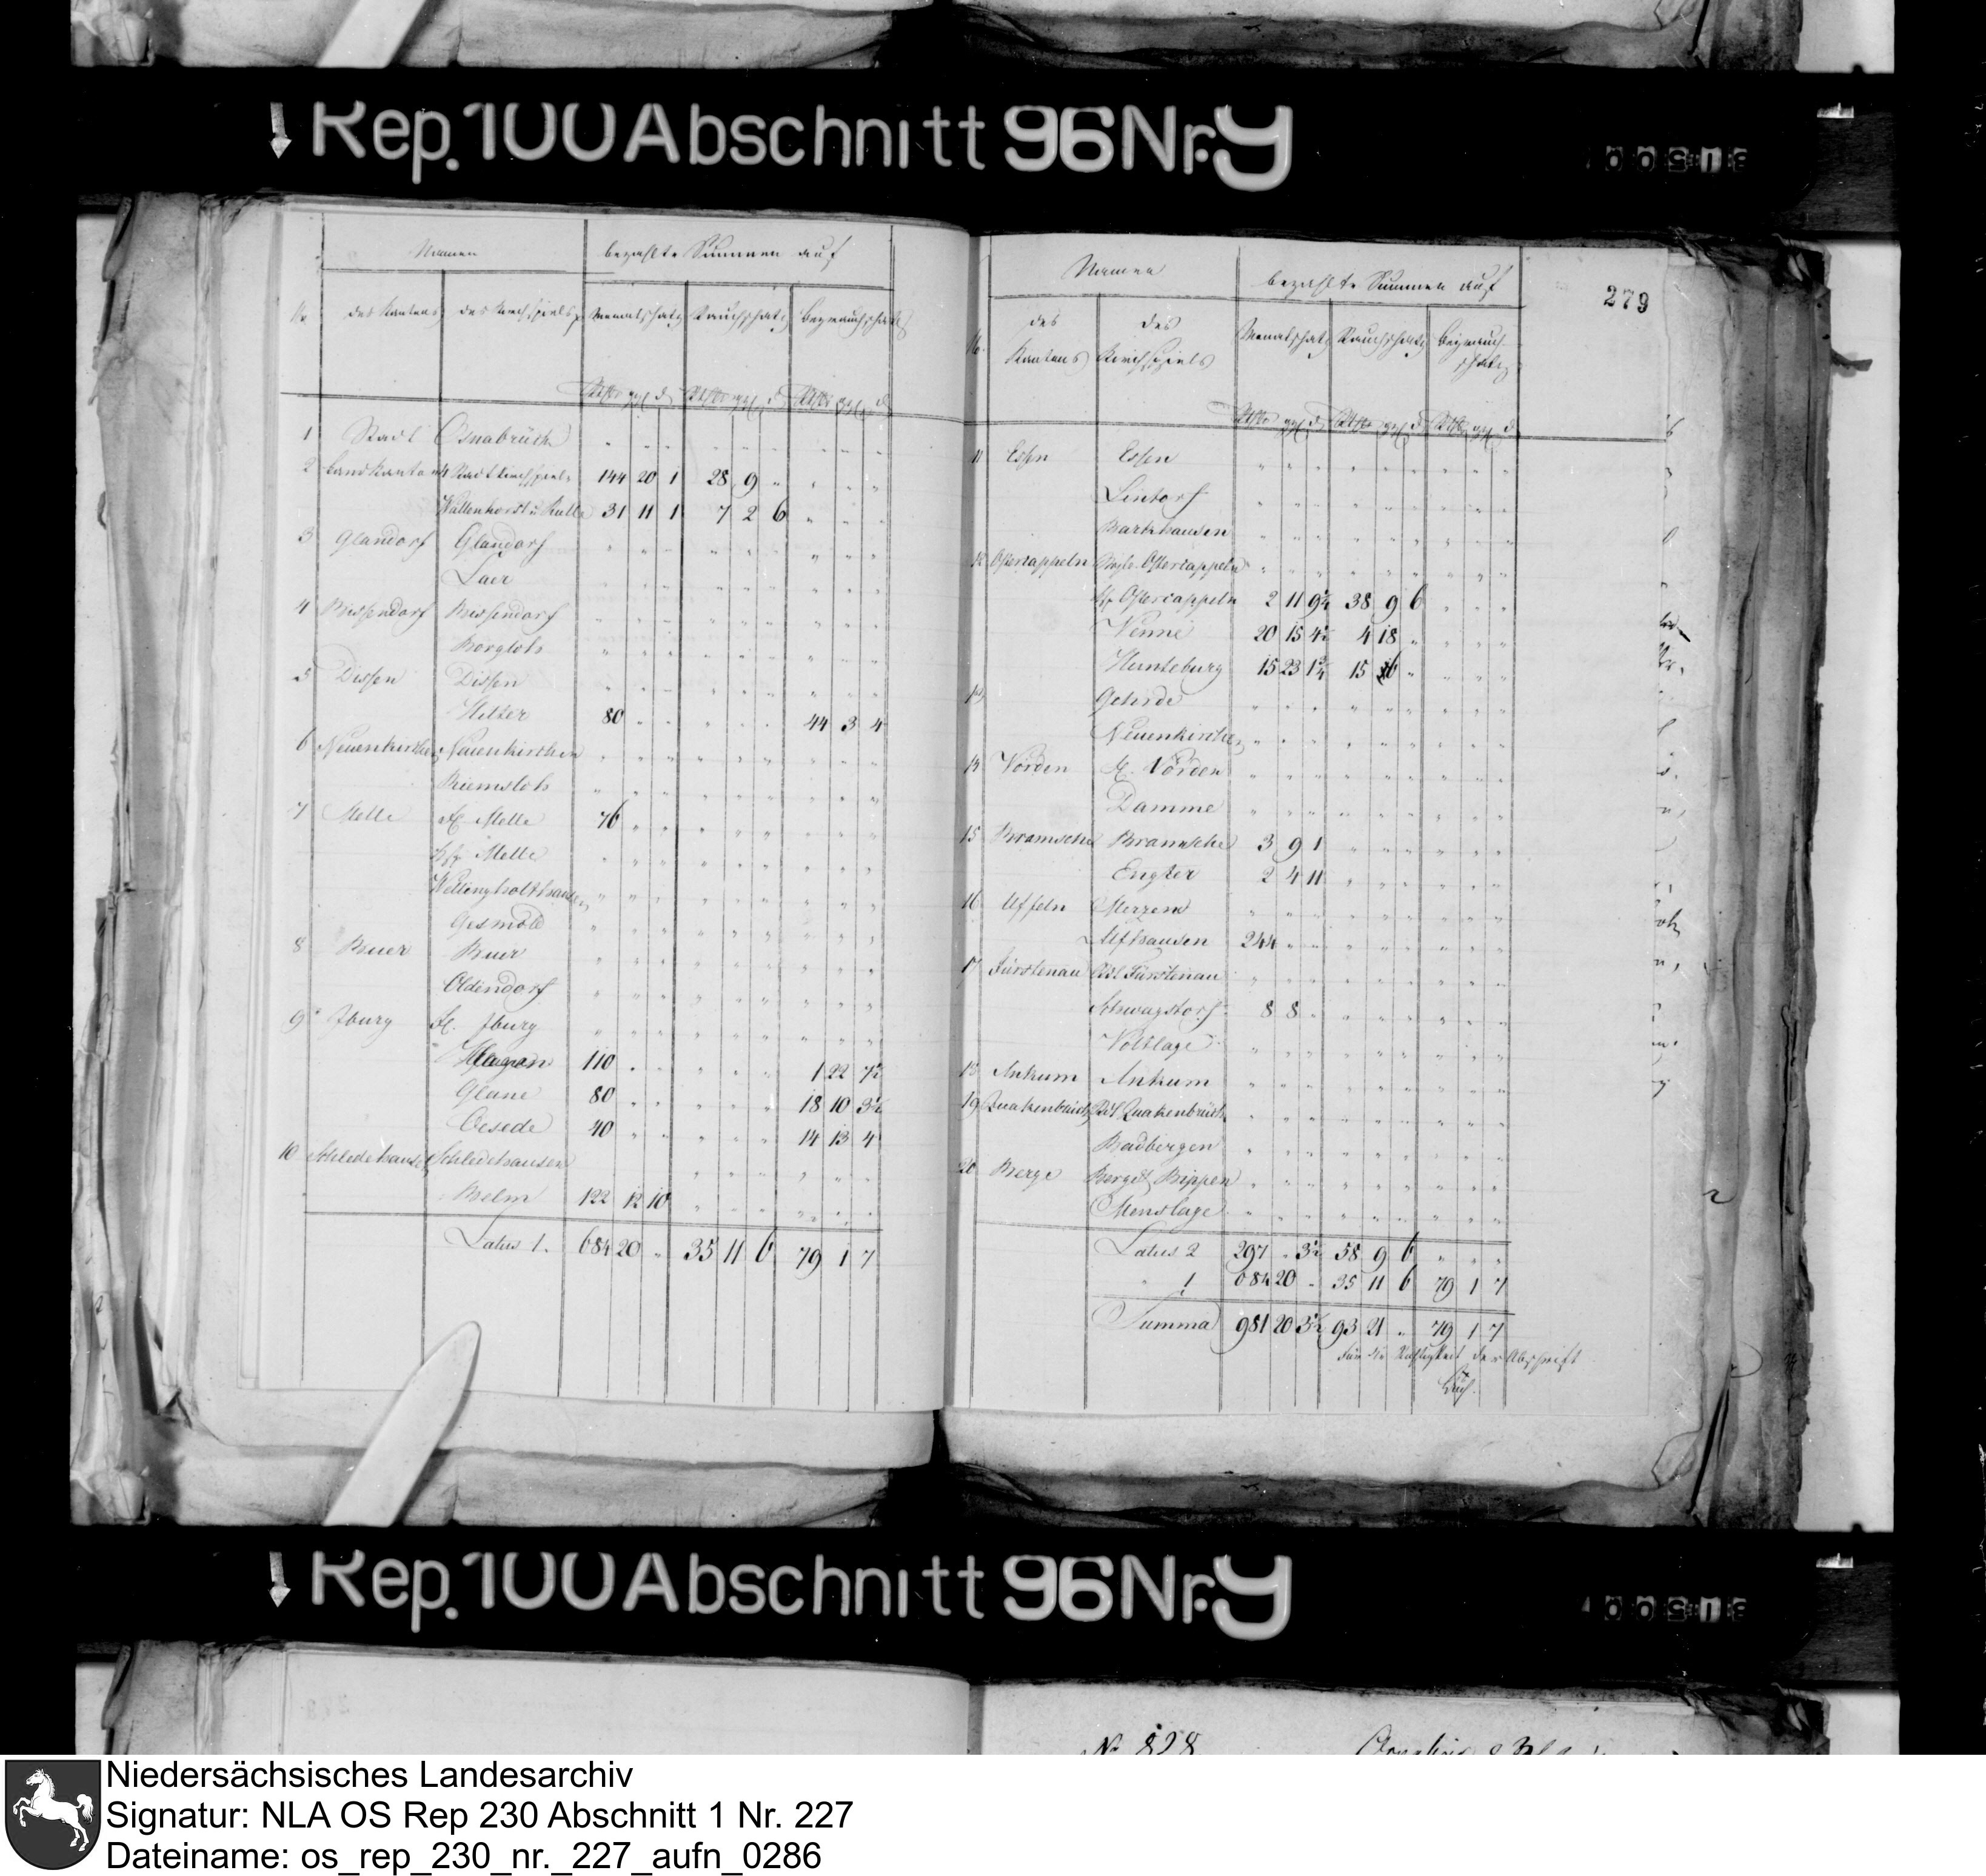 Rep. 100 Abschnitt 96 Nr. 9
Namen bezahlte Summen auf
No des Kantons des Kirchspiels Monatschatz Rauchschatz Beyrauchschatz
Rthlr ggl d Rthlr ggl d Rthlr ggl d
1 Stadt Osnabrück " " " " " " " " "
2 Landkanton Stadtkirchspiel 144 20 1 28 9 " " " "
Wallenhorst u Rulle 31 11 1 7 2 6 " " "
3 Glandorf Glandorf " " " " " " " " "
Laer " " " " " " " " "
4 Bissendorf Bissendorf " " " " " " " " "
Borgloh " " " " " " " " "
5 Dissen Dissen " " " " " " " " "
Hilter 80 " " " " " 44 3 4
6 Neuenkirchen Neuenkirchen " " " " " " " " "
Riemsloh " " " " " " " " "
7 Melle St. Melle 76 " " " " " " " "
Ksp Melle " " " " " " " " "
Wellingholthausen " " " " " " " " "
Gesmold " " " " " " " " "
8 Buer Buer " " " " " " " " "
Oldendorf " " " " " " " " "
9 Iburg Fl. Iburg " " " " " " " " "
Hagen 110 " " " " " 1 22 7½
Glane 80 " " " " " 18 10 3½
Oesede 40 " " " " " 14 13 4
10 Schledehausen Schledehausen " " " " " "
Belm 122 12 10 " " " " " "
Latus 1. 684 20 " 35 11 6 79 1 7
279
Namen bezahlte Summen auf
No. des Kantons des Kirchspiels Monatschatz Rauchschatz Beyrauchschatz
Rthlr ggl d Rthlr ggl d Rthlr ggl d
11 Essen Essen " " " " " " " " "
Lintorf " " " " " " " " "
Barkhausen " " " " " " " " "
12 Ostercappeln Ostercappeln " " " " " " " " "
Ksp Ostercappeln 2 11 9¾ 38 9 6 " " "
Venne 20 15 4½ 4 18 " " " "
Hunteburg 15 23 1¼ 15 6 " " " "
13 Gehrde " " " " " " " " "
Neuenkirchen " " " " " " " " "
14 Vörden Fl. Vörden " " " " " " " " "
Damme " " " " " " " " "
15 Bramsche Bramsche 3 9 1 " " " " " "
Engter 2 4 11 " " " " " "
16 Uffeln Merzen " " " " " " " " "
Alfhausen 244 " " " " " " " "
17 Fürstenau Fürstenau " " " " " " " " "
Schwagstorf 8 8 " " " " " " "
Voltlage " " " " " " " " "
18 Ankum Ankum " " " " " " " " "
19 Quakenbrück Quakenbrück " " " " " " " " "
Badbergen " " " " " " " " "
20 Berge Berge & Bippen " " " " " " " " "
Menslage " " " " " " " " "
Latus 2 297 " 3½ 58 9 6 " " "
" 1 684 20 " 35 11 6 79 1 7
Summa 981 20 3½ 93 21 " 79 1 7
Für die Richtigkeit der Abschrift
Rep. 100 Abschnitt 96 Nr. 9
No 828
Niedersächsisches Landesarchiv
Signatur: NLA OS Rep 230 Abschnitt 1 Nr. 227
Dateiname: os_rep_230_nr._227_aufn_0286